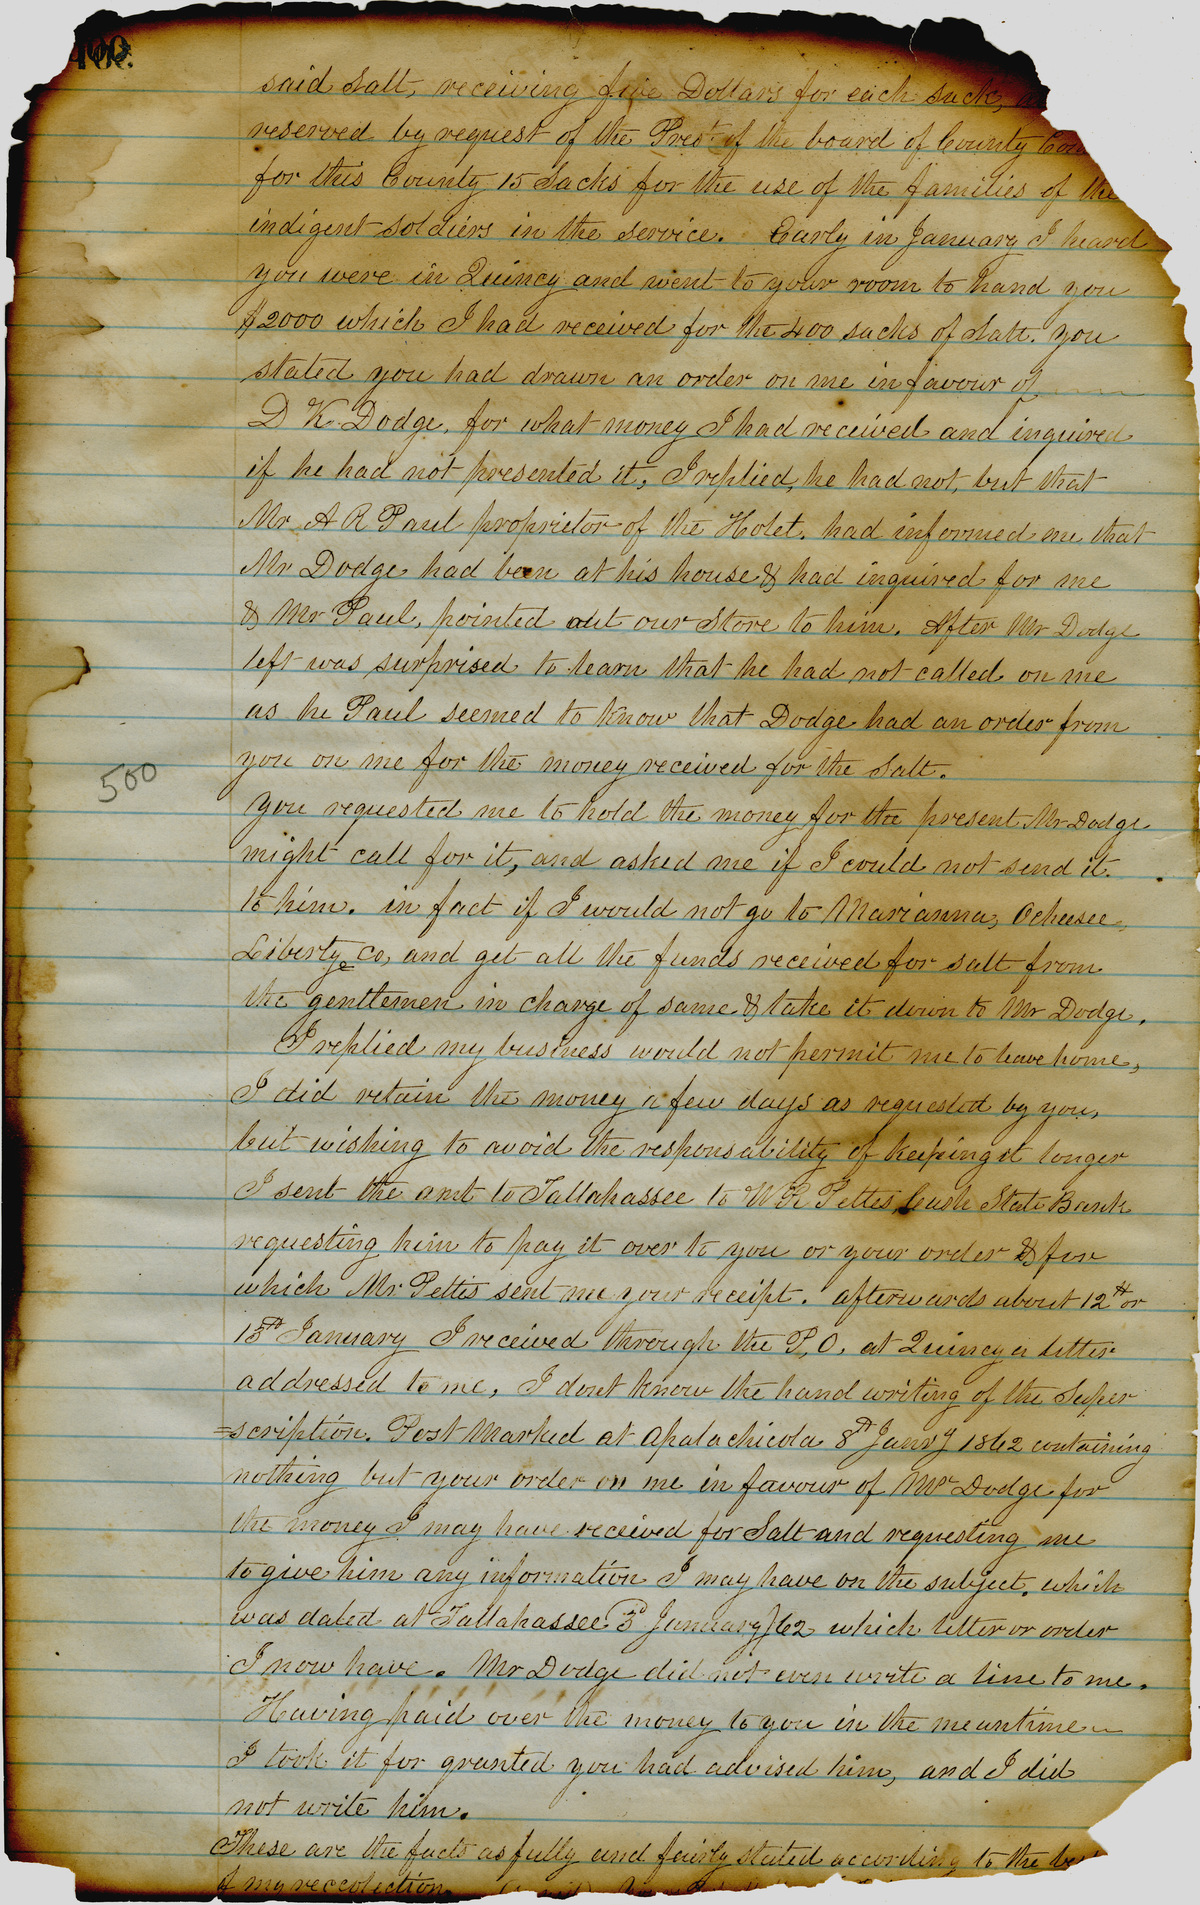 400.
said Salt, receiving five Dollars for each sack,
reserved by request of the Prest of the board of County
for this County 15 Sacks for the use of the families of the
indigent soldiers in the service. Early in January I heard
you were in Quincy and went to your room to hand you
$2000 which I had received for the 400 sacks of Salt. you
stated you had drawn an order on me in favour of
D K Dodge, for what money I had received and inquired
if he had not presented it, I replied, he had not, but that
Mr A R Paul proprietor of the Hotel, had informed me that
Mr Dodge had been at his house & had inquired for me
& Mr Paul, pointed out our Store to him. After Mr Dodge
left was surprised to learn that he had not called on me
as he Paul seemed to know that Dodge had an order from
you on me for the money received for the Salt.
500
You requested me to hold the money for the present Mr Dodge
might call for it, and asked me if I could not send it
to him. in fact if I would not go to Marianna, Ocheesee,
Liberty Co, and get all the funds received for salt from
the gentlemen in charge of same & take it down to Mr Dodge.
I replied my business would not permit me to leave home,
I did retain the money a few days as requested by you,
but wishing to avoid the responsability of keeping it longer
I sent the amt to Tallahassee to W R Pettes, Cash State Bank
requesting him to pay it over to you or your order & for
which Mr Pettis sent me your receipt. afterwards about 12th or
13th January I received through the P.O. at Quincy a letter
addressed to me, I dont know the hand writing of the Super
=scription. Post Marked at Apalachicola 8th Janry 1862 containing
nothing but your order on me in favour of Mr Dodge for
the money I may have received for Salt and requesting me
to give him any information I may have on the subject. which
was dated at Tallahassee 3d January /62 which letter or order
I now have. Mr Dodge did not even write a line to me.
Having paid over the money to you in the meantime
I took it for granted you had advised him, and I did
not write him.
These are the facts as fully and fairly stated according to the
of my reccolection